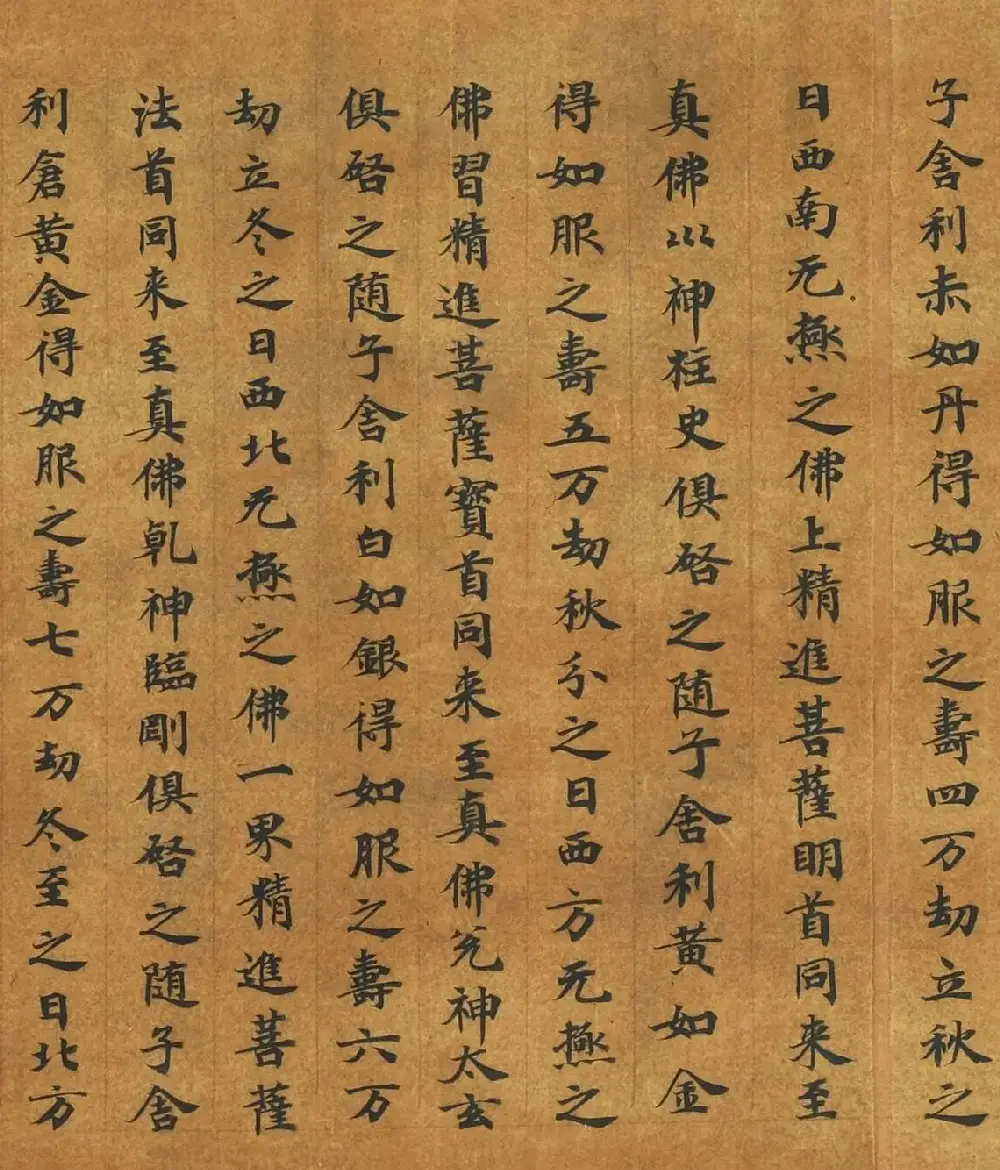 子舍利赤如丹得如服之壽四万劫立秋之
日西南无極之佛上精進菩薩明首同来至
真佛巛神柱史俱啓之随子舍利黄如金
得如服之壽五万劫秋分之日西方无極之
佛習精進菩薩寶首同来至真佛兊神太玄
俱啓之随子舍利白如銀得如服之壽六万
劫立冬之日西北无極之佛一界精進菩薩
法首同来至真佛乹神臨剛俱啓之随子舍
利倉黄金得如服之壽七万劫冬至之日北方